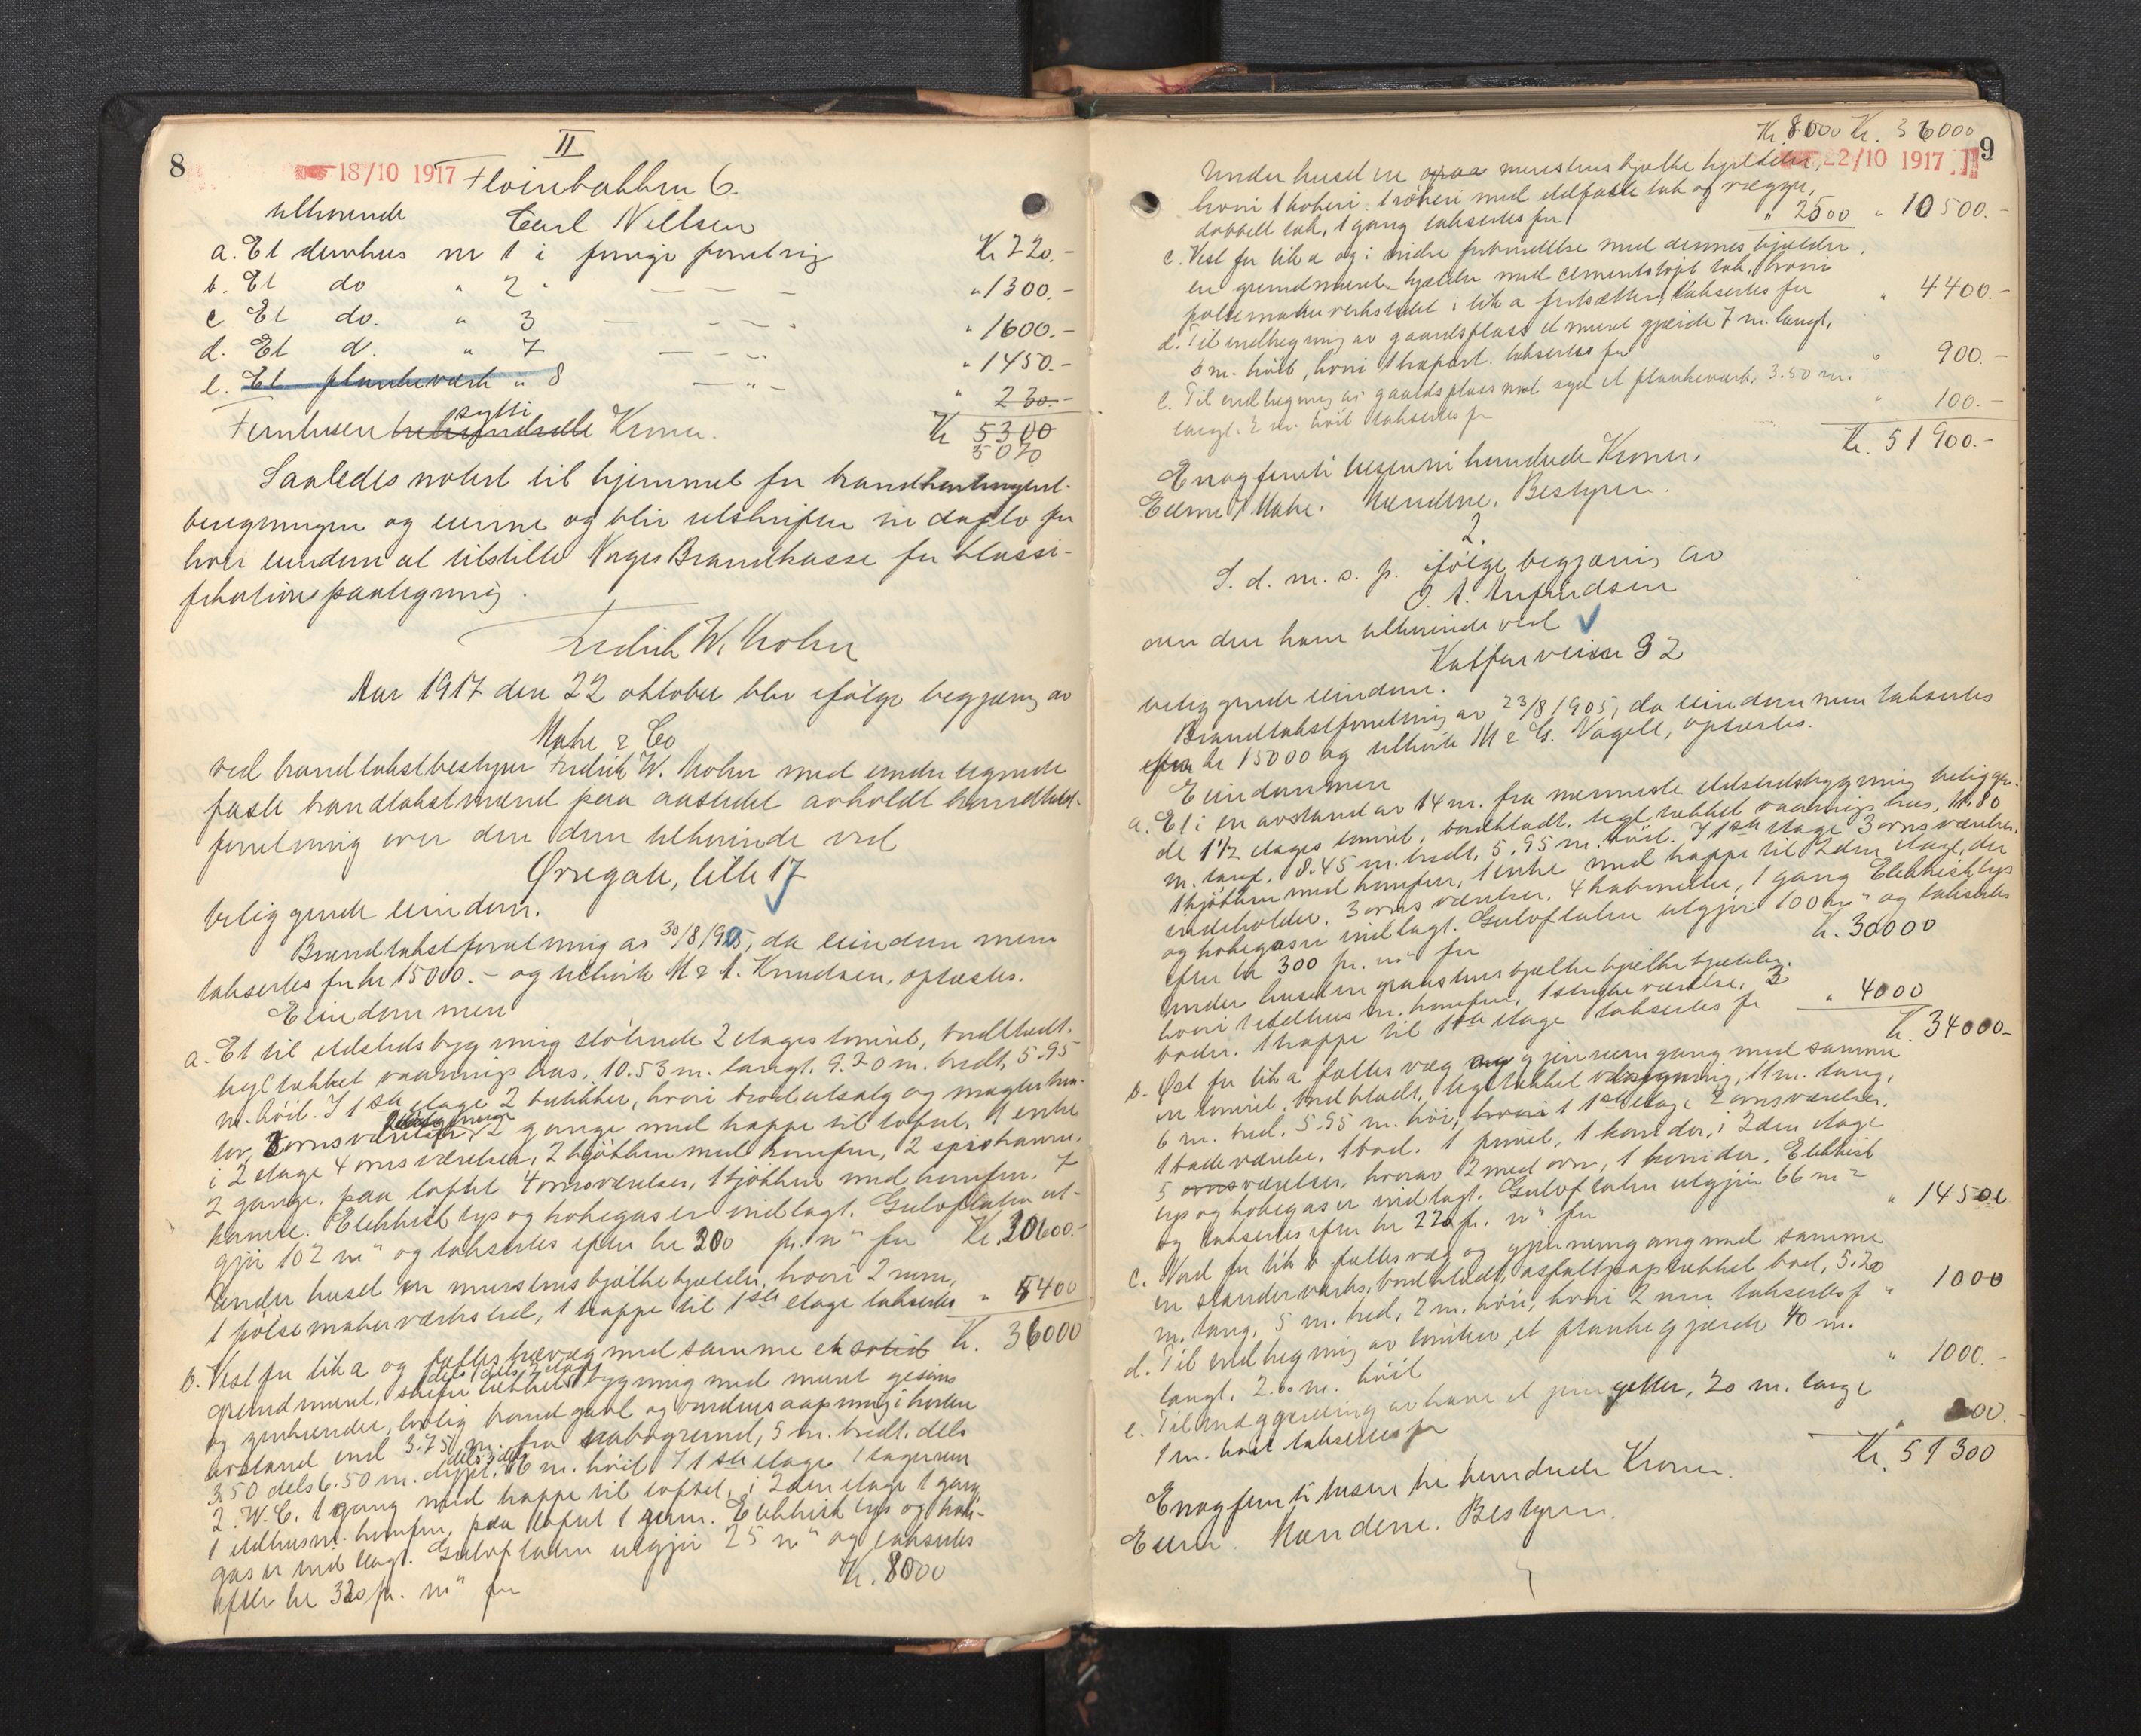 8
II
18/10 1917 Fløienbakken 6.
tilhørende
Carl Nilsen
a. Et do vhus nr 1 i forrige forretning Kr 720.-
b. Et do " 2 " — — — " 1300.-
c Et do. " 3 — — — " 1600.-
d. Et d. " 7 — " — " 1450.-
e. Et plankeværk " 8 — " — " 230.-
sytti
Femtusen trehundrede Kroner. Kr 5300
5070
Saaledes notert til hjemmel for brandkontingent-
beregningen og eierne og blir utskriften in duplo for
hver eiendom at tilstille Norges Brandkasse for klassi-
fikationspaategning.
Fredrik W. Mohn
Aar 1917 den 22 oktober blev ifølge begjæring av
Mahr & Co
ved brandtakstbestyrer Fredrik W. Mohn med undertegnede
faste brandtakstmænd paa aastedet avholdt brandtakst-
forretning over den dem tilhørende ved
Øvregate, litle 17
beliggende eiendom.
Brandtakstforretning av 30/8/1905, da eiendommen
taksertes for kr 15000.- og tilhørte M & A. Knudsen, oplæstes.
Eiendommen
a. Et til ildstedsbygning støtende 2 etages tømret, bordklædt.
tegltækket vaaningshus, 10.53 m. langt, 9.20 m. bredt, 5.95
m. høit. I 1ste etage 2 butikker, hvori brødutsalg og magler kon-
tor, 3 ornsværelser, 2 gange med trappe til loftet, 1 enke
i 2 etage 4 ornsværelser, 2 kjøkken med komfur, 2 spiskamre,
2 gange, paa loftet 4 ornsværelser, 1 kjøkken med komfur, 7
kamre. Elektrisk lys og kokegas er indlagt. Gulvflaten ut-
gjør 102 m² og taksertes efter kr 300 pr. m² for Kr. 30600.-
Under huset en murstens hjælke kjælder, hvori 2 rum,
1 pølsemakerværksted, 1 trappe til 1ste etage taksertes " 5400
Kr. 36000
b. Vest for lit. a og fælles trævæg med samme en solid
grundmuret, skifertækket bygning med muret gesims
og zinkrender, lovlig brandgavl og vindusaapning i hvilken
avstand ind 3.75 m. fra nabogrund, 5 m. bredt, dels
3.50 dels 6.50 m. dypt, 6 m. høit. I 1ste etage 1 lagerrum
2. W.C. 1 gang med trappe til loftet, i 2den etage 1 gang
1 ildhus m. komfur, paa loftet 1 rum. Elektrisk lys og koke-
gas er indlagt. Gulvflaten utgjør 25 m² og taksertes
efter kr 320 pr. m² for Kr. 8000
9
Kr. 8000 Kr. 36000
22/10 1917
Under huset en murstens hjælke kjælder,
hvori 1 kokeri, 1 røkeri med ildfaste tak og vægge,
dobbelt tak, 1 gang taksertes for " 2500 " 10500.-
c. Vest for lit a og i indre forbindelse med dennes kjælder,
en grundmuret kjælder med cementstøpt tak, hvori
pølsemakerverkstedet i lit a fortsætter, taksertes for " 4400.-
d. Til indhegning av gaardsplass et muret gjærde 7 m. langt,
6 m. høit, hvori 1 træport. taksertes for " 900.-
e. Til indhegning av gaardsplass mot syd et plankeværk, 3.50 m.
langt. 2 m. høit taksertes for " 100.-
Kr. 51900.-
Enogfemti tusen ni hundrede Kroner.
Eierne / Mahr. Mændene. Bestyrer.
2.
S. d. m. s. p. ifølge begjæring av
O. A. Anfindsen
over den ham tilhørende ved
Kalfarveien 32
beliggende eiendom.
Brandtakstforretning av 23/8/1905, da eiendommen taksertes
efter kr 15000 og tilhørte M & G. Nagell, oplæstes.
Eiendommen
a. Et i en avstand av 14 m. fra nærmeste ildstedsbygning beliggen-
de 1 1/2 etages tømret, bordklædt, tegltækket vaaningshus, 11.80
m. langt, 8.45 m. bredt, 5.95 m. høit. I 1ste etage 3 ornsværelser,
1 kjøkken med komfur, 1 enke med trappe til 2den etage, der
indeholder. 3 ornsværelser, 4 kabinetter, 1 gang. Elektrisk lys
og kokegas er indlagt. Gulvflaten utgjør 100 m² og taksertes
efter kr 300 pr. m² for Kr. 30000
Under huset en graastens hjælke kjælder,
hvori 1 ildhus m. komfur, 1 stryke værelse, 3
boder. 1 trappe til 1ste etage taksertes for " 4000
Kr. 34000-
b. Øst for lit a fælles væg og gjennemgang med samme
en tømret, bordklædt, tegltækket bygning, 11 m. lang,
6 m. bred, 5.95 m. høi, hvori i 1ste etage 2 ornsværelser,
1 badeværelse, 1 bod. 1 privet, 1 korridor, i 2den etage
5 værelser, hvorav 2 med orn, 1 korridor. Elektrisk
lys og kokegas er indlagt. Gulvflaten utgjør 66 m²
og taksertes efter kr 220 pr. m² for " 14500
c. Nord for lit b fælles væg og gjennemgang med samme
en stenderværks, bordklædt, asfaltpaptækket bod, 5.20
m. lang, 5 m. bred, 2 m. høi, hvori 2 rum taksertes f " 1000
d. Til indhegning av tomten et plankegjærde 40 m.
langt, 2.00 m. høit " 1000.-
e. Til indgjærding av have et jerngitter, 20 m. langt
1 m. høit taksertes for " 800.-
Kr. 51300
Enogfemti tusen tre hundrede Kroner.
Eieren. Mændene. Bestyrer.